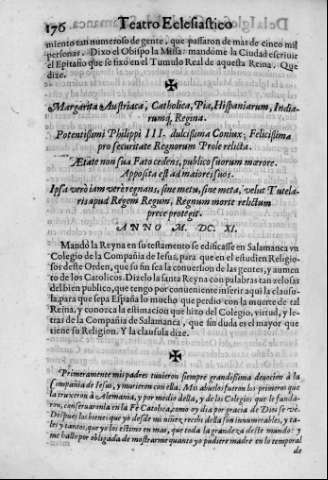 176 Teatro Eclesiastico
miento tan numeroso de gente, que passaron de mas de cinco mil
personas. Dixo el Obispo la Missa: mandòme la Ciudad escriuir
el Epitafio que se fixò en el Tumulo Real de aquesta Reina. Que
dize.
✠
Margarita Austriaca, Catholica, Pia, Hispaniarum, India-
rumq́, Regina.
Potentissimi Philippi III. dulcissima Coniux; Felicissima
pro securitate Regnorum Prole relicta.
Ætate non sua Fato cedens, publico suorum mærore.
Apposita est ad maiores suos.
Ipsa verò iam verè regnans, sine metu, sine meta, velut Tutela-
ris apud Regem Regum, Regnum morte relictum
prece protegit.
ANNO M. DC. XI.
Mandò la Reyna en su testamento se edificasse en Salamanca vn
Colegio de la Compañia de Iesus, para que en el estudien Religio-
sos deste Orden, que su fin sea la conuersion de las gentes, y aumen
to de los Catolicos. Dizelo la santa Reyna con palabras tan zelosas
del bien publico, que tengo por conueniente inserir aqui la clausu-
la, para que sepa España lo mucho que perdio con la muerte de tal
Reina, y conozca la estimacion que hizo del Colegio, virtud, y le-
tras de la Compañia de Salamanca, que sin duda es el mayor que
tiene su Religion. Y la clausula dize.
✠
Primeramente mis padres tuuieron siempre grandissima deuocion à la
Compañia de Iesus, y murieron con ella. Mis abuelos fueron los primeros que
la truxeron à Alemania, y por medio desta, y de los Colegios que le funda-
ron, conseruaronla en la Fè Catolica, como oy dia por gracia de Dios se vè.
Despues los bienes que yo desde mi niñez recebi desta son innumerables, y ta-
les, y tantos, que yo los estimo en mas, que toda la grandeza deste mundo: y
me hallo por obligada de mostrarme quanto yo pudiere madre en lo temporal
de